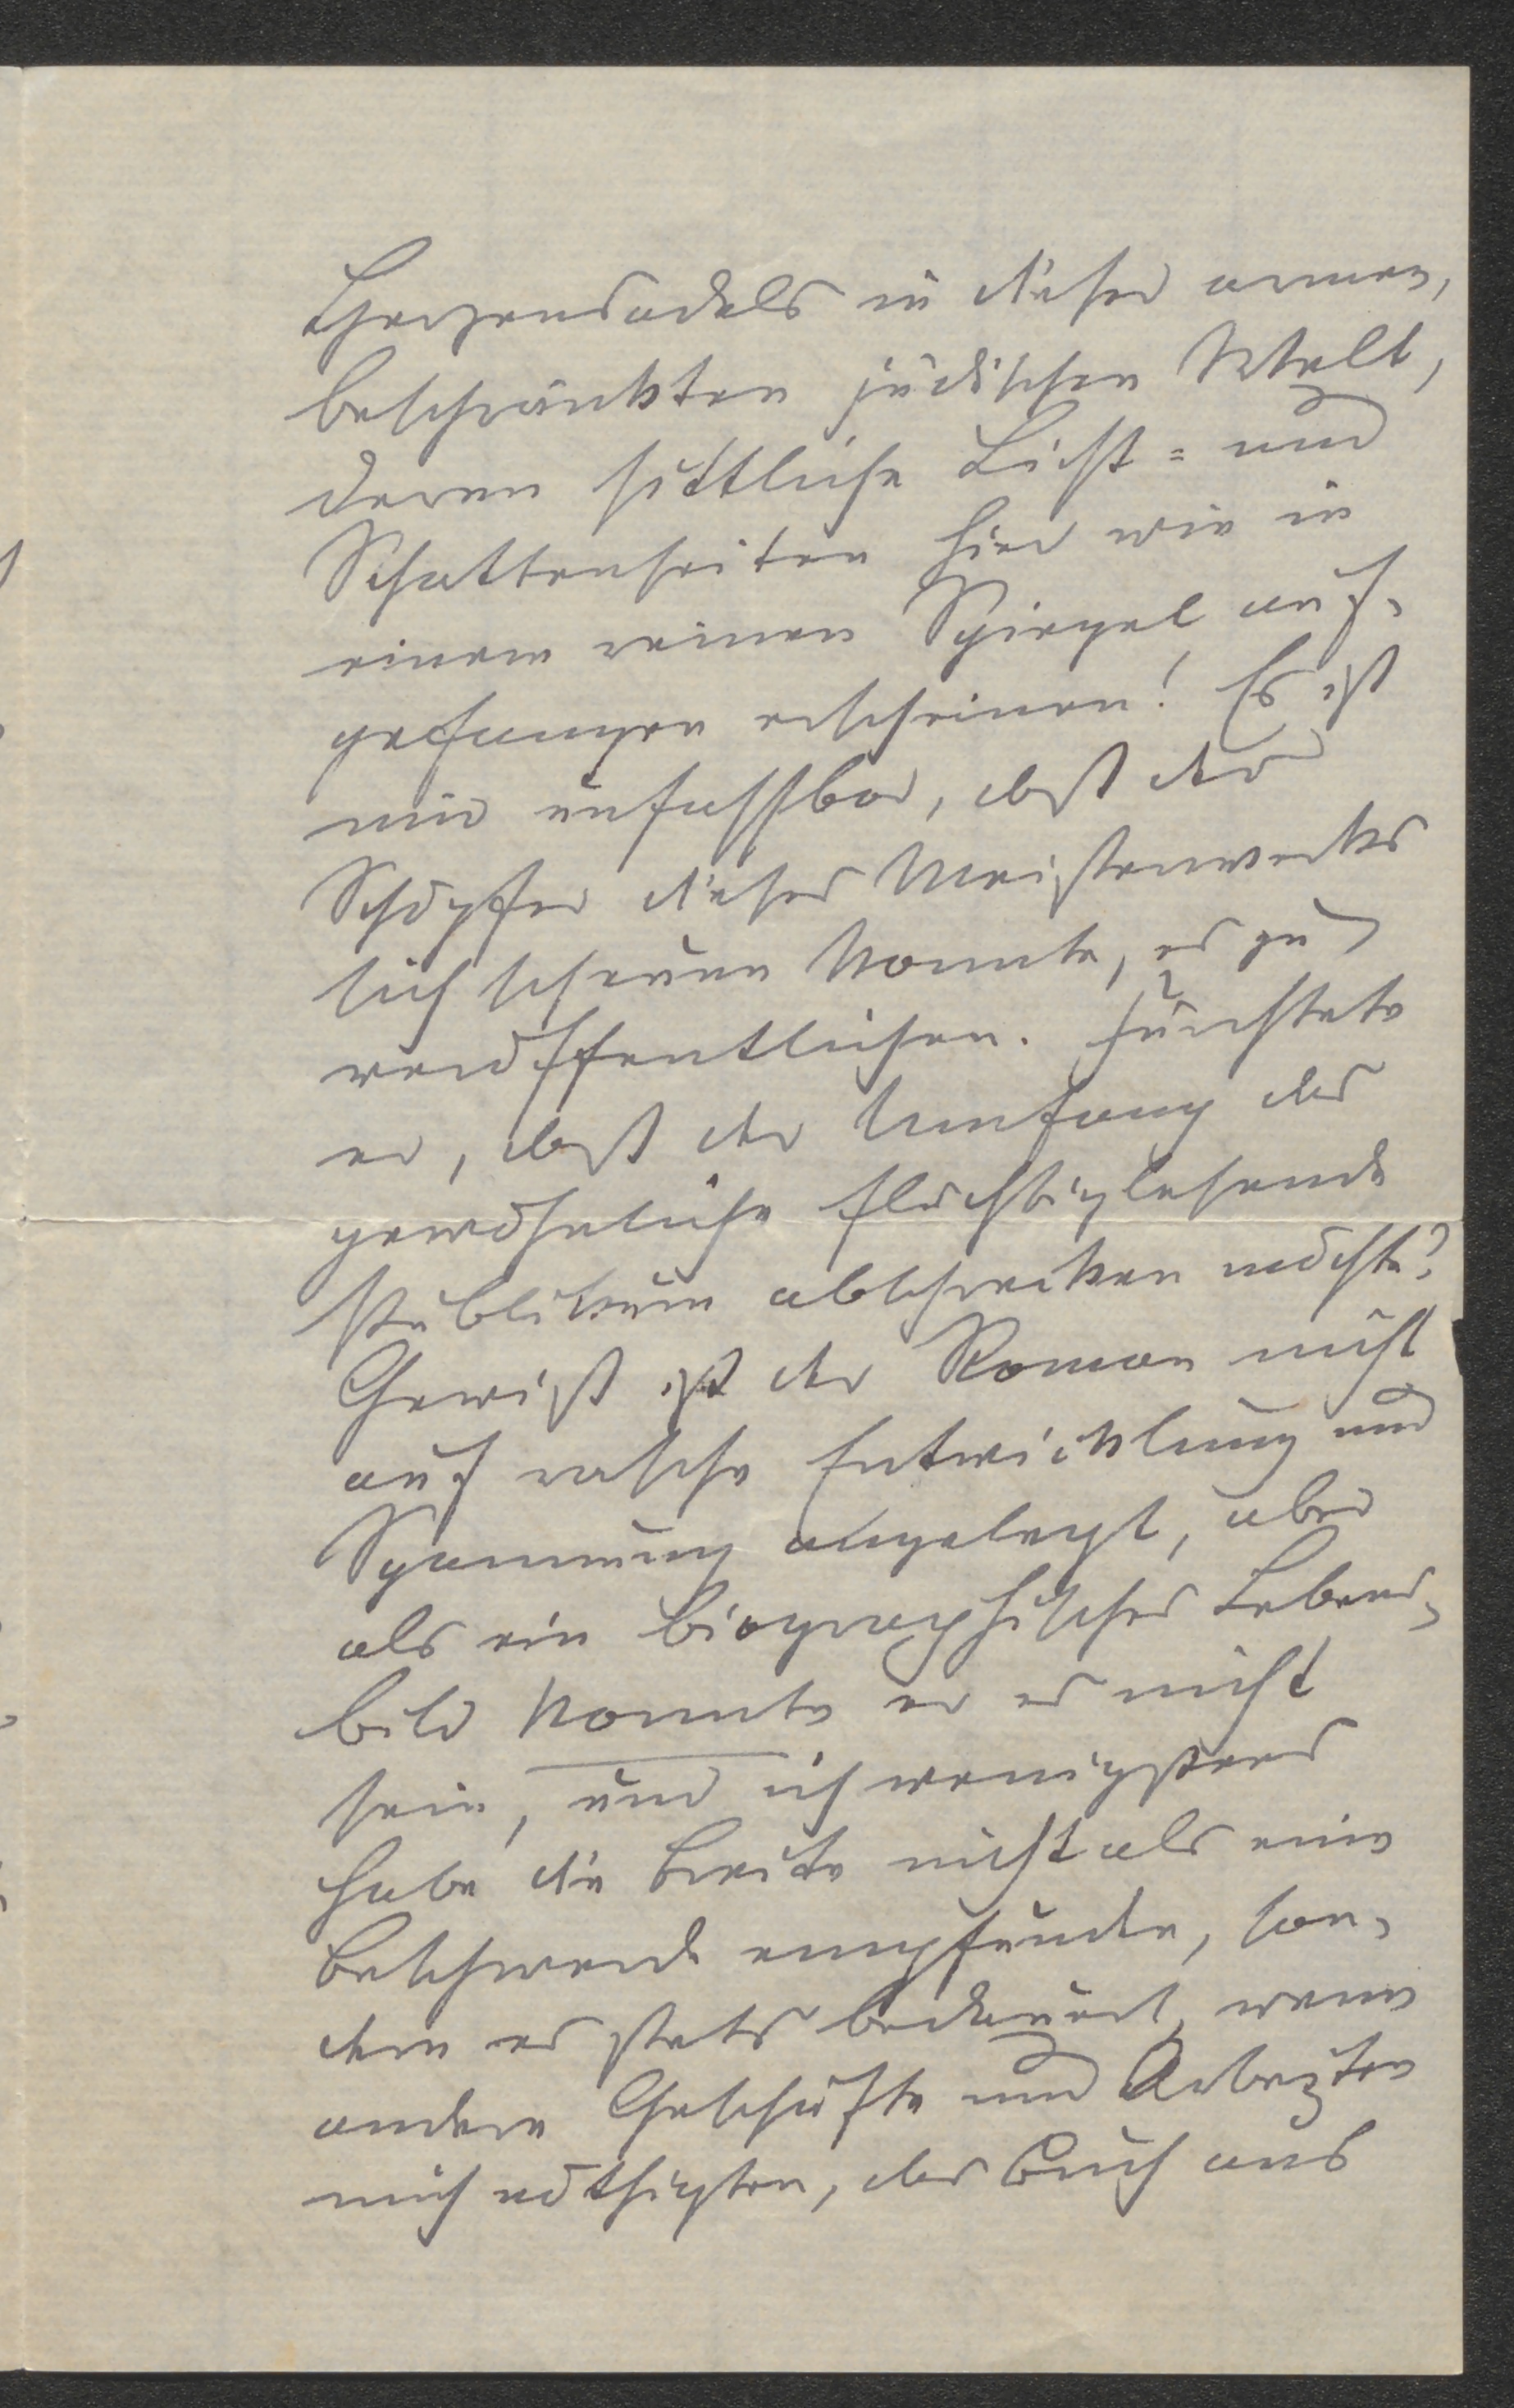 Herzensadels in dieser armen,
beschränkten jüdischen Welt,
deren sittliche Licht- und
Schattenseiten hier wie in
einem reinen Spiegel auf-
gefangen erscheinen! Es ist
mir unfassbar, daß der
Schöpfer dieses Meisterwerkes
sich scheuen konnte, es zu
veröffentlichen. Fürchtete
er, daß der Umfang das
gewöhnliche flüchtiglesende
Publikum abschrecken möchte?
Gewiß ist der Roman nicht
auf rasche Entwicklung und
Spannung angelegt, aber
als ein biographisches Lebens-
bild konnte er es nicht
sein, und ich wenigstens
habe die Breite nicht als eine
Beschwerde empfunden, son-
dern es stets bedauert, wenn
andere Geschäfte und Arbeiten
mich nöthigten, das Buch aus